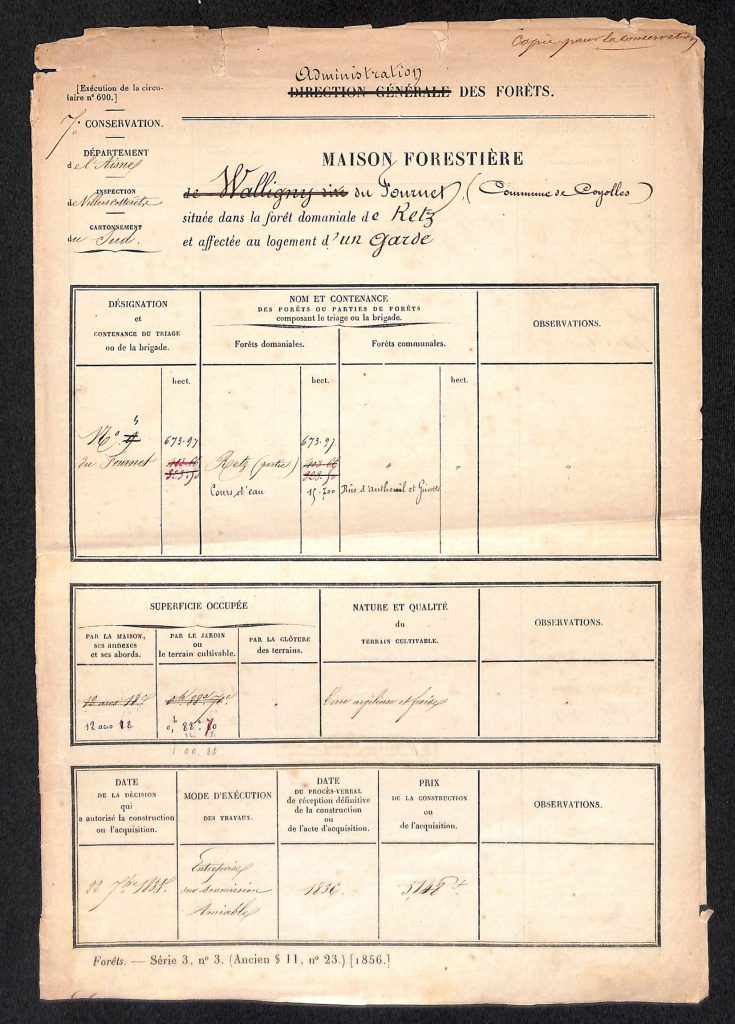 Copie pour la conservation
[Exécution de la circu-
laire n° 690.]
Administration
DIRECTION GÉNÉRALE DES FORÊTS.
7e CONSERVATION.
DÉPARTEMENT
de l'Aisne
INSPECTION
de Villers-Cotterêts
CANTONNEMENT
du Sud.
MAISON FORESTIÈRE
de Walligny dite du Fournet, (Commune de Coyolles)
située dans la forêt domaniale de Retz
et affectée au logement d'un Garde
DÉSIGNATION
et
CONTENANCE DU TRIAGE
ou de la brigade.
NOM ET CONTENANCE
DES FORÊTS OU PARTIES DE FORÊTS
composant le triage ou la brigade.
Forêts domaniales.
Forêts communales.
OBSERVATIONS.
hect.
hect.
hect.
N°
673.97
673.97
du Fournet
403.66
Retz (partie)
403.66
"
"
"
323.50
323.50
Cours d'eau
15.700
Rûs d'Autheuil et
SUPERFICIE OCCUPÉE
PAR LA MAISON,
ses annexes
et ses abords.
PAR LE JARDIN
ou
le terrain cultivable.
PAR LA CLÔTURE
des terrains.
NATURE ET QUALITÉ
du
TERRAIN CULTIVABLE.
OBSERVATIONS.
12 ares 18c
0h 88a 70c
"
Terre argileuse et froide
"
12 ares 18
0h 88a 70
1 00, 88
DATE
DE LA DÉCISION
qui
a autorisé la construction
ou l'acquisition.
MODE D'EXÉCUTION
DES TRAVAUX.
DATE
DU PROCÈS-VERBAL
de réception définitive
de la construction
ou
de l'acte d'acquisition.
PRIX
DE LA CONSTRUCTION
ou
de l'acquisition.
OBSERVATIONS.
22 7bre
Entreprise
sur soumission
Amiable
1836.
5,148 f.
Forêts. — Série 3, n° 3. (Ancien § 11, n° 23.) [1856.]